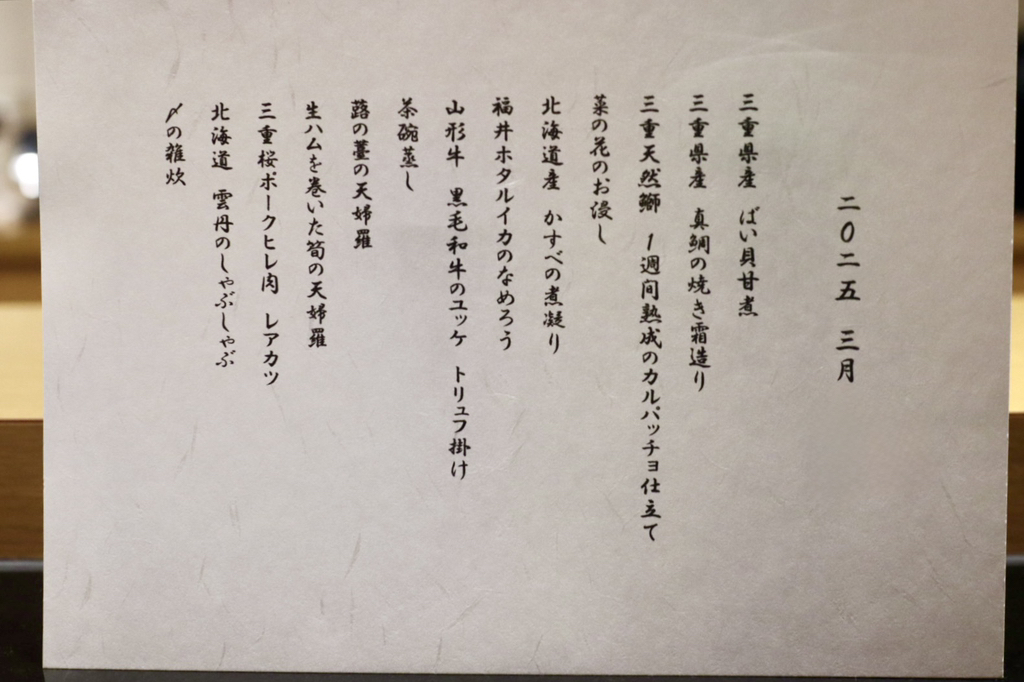 二〇二五 三月
三重県産 ばい貝甘煮
三重県産 真鯛の焼き霜造り
三重天然鰤 1週間熟成のカルパッチョ仕立て
菜の花のお浸し
北海道産 かすべの煮凝り
福井ホタルイカのなめろう
山形牛 黒毛和牛のユッケ トリュフ掛け
茶碗蒸し
蕗の薹の天婦羅
生ハムを巻いた筍の天婦羅
三重桜ポークヒレ肉 レアカツ
北海道 雲丹のしゃぶしゃぶ
〆の雑炊